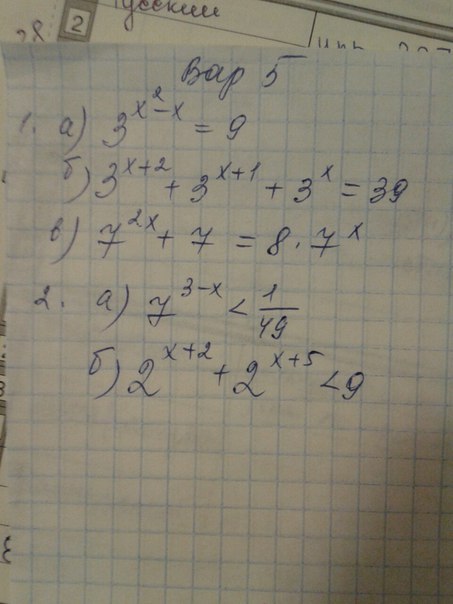 усский
28.
2
Вар 5
1. а) 3^{x^2-x} = 9
б) 3^{x+2} + 3^{x+1} + 3^x = 39
в) 7^{2x} + 7 = 8 · 7^x
2. а) 7^{3-x} < 1/49
б) 2^{x+2} + 2^{x+5} < 9